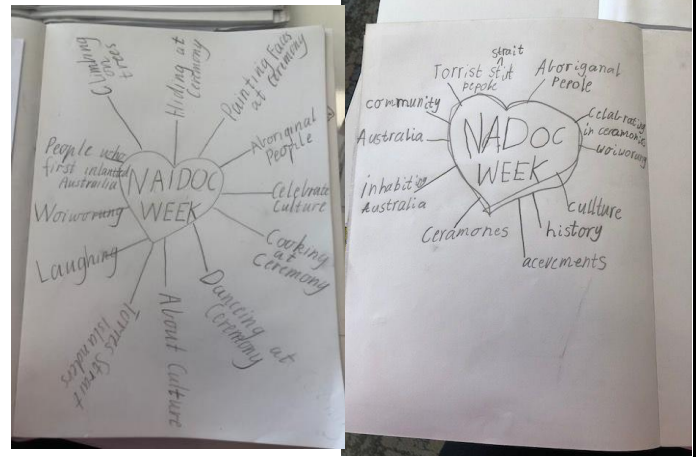 Climbing
on
trees
Hiding at
Ceremony
Painting Faces
at Ceremony
Aboriginal
People
Celebrate
Culture
Cooking
at
Ceremony
Dancing at
Ceremony
About Culture
Torres Strait
Islanders
Laughing
Woiworung
People who
first inhabited
Australia
NAIDOC
WEEK
strait
Torrist stit
pepole
Aboriganal
Perole
Celabrating
in ceramonie
woiworung
cullture
history
acevements
Ceramones
inhabiting
Australia
Australia
community
NADOC
WEEK